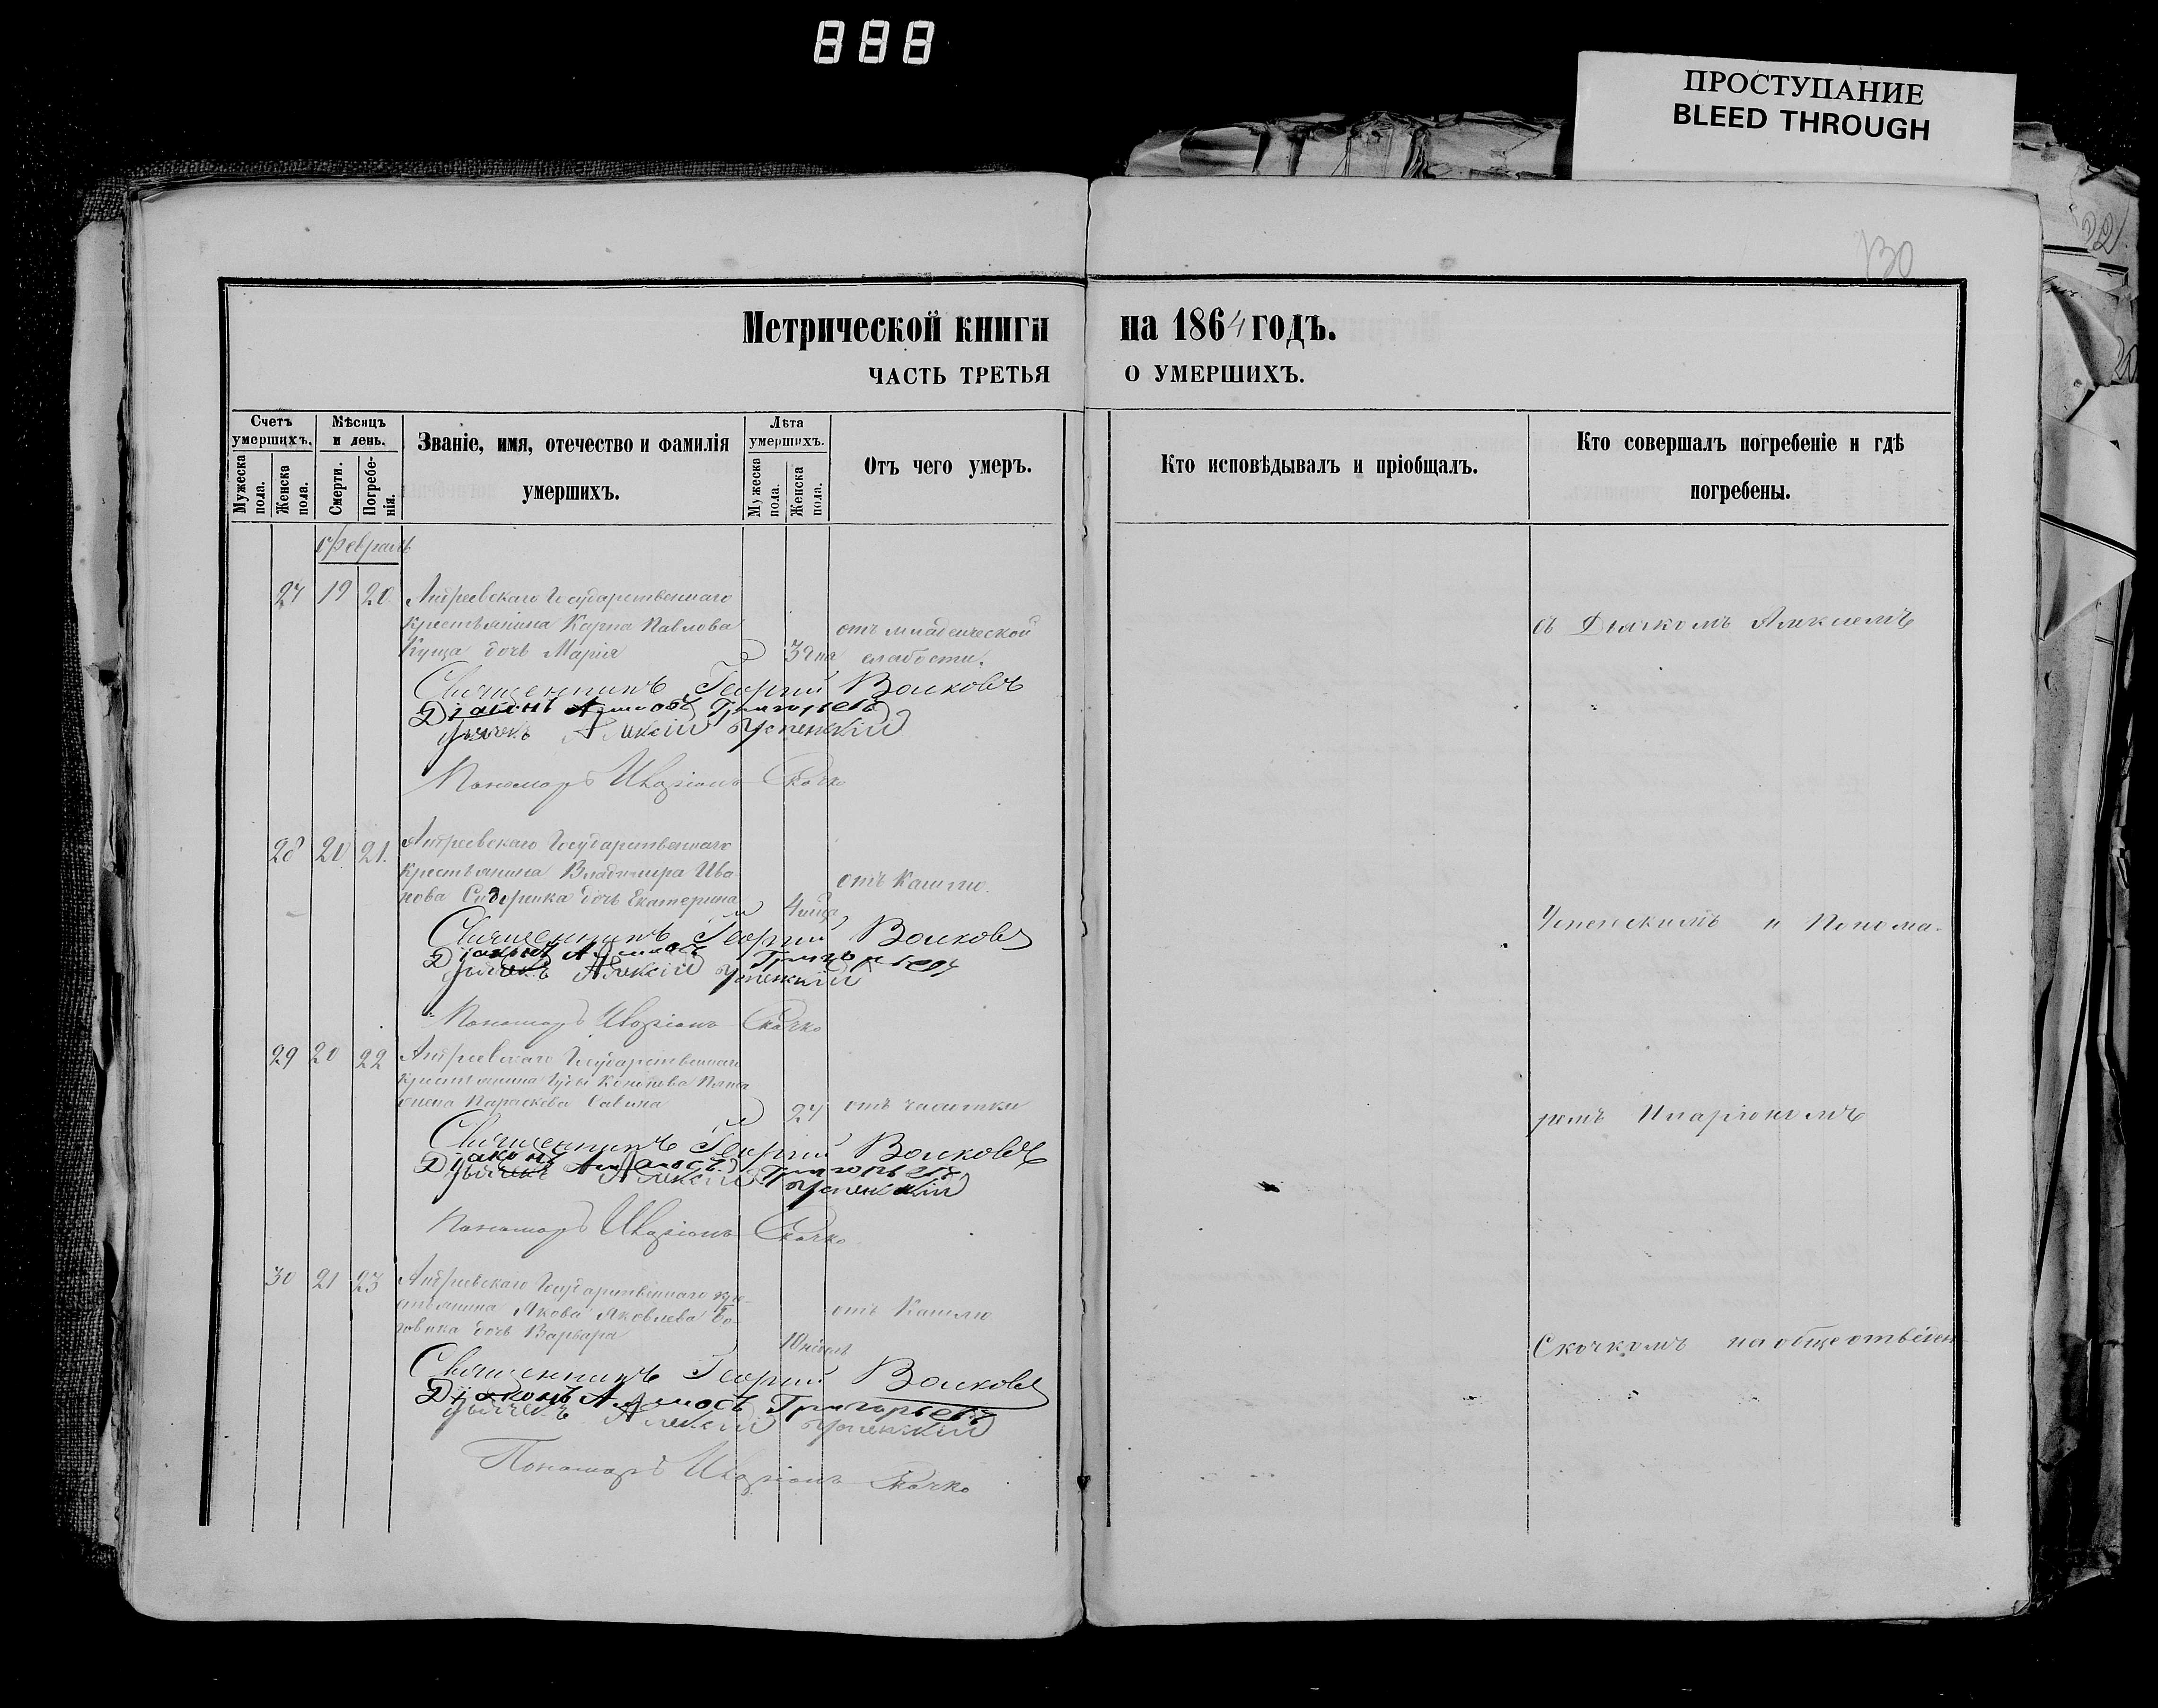 888
ПРОСТУПАНИЕ
BLEED THROUGH
130
Метрической книги на 1864 годъ.
ЧАСТЬ ТРЕТЬЯ О УМЕРШИХЪ.
Счетъ умершихъ.
Мужеска пола.
Женска пола.
Мѣсяцъ и день.
Смерти.
Погребенія.
Званіе, имя, отечество и фамилія
умершихъ.
Лѣта умершихъ.
Мужеска пола.
Женска пола.
Отъ чего умеръ.
Кто исповѣдывалъ и пріобщалъ.
Кто совершалъ погребеніе и гдѣ
погребены.
Февраль
27 19 20 Андреевскаго Государственнаго
крестьянина Карпа Павлова отъ младенческой съ Дьячкомъ Алексіемъ
Куца дочь Марія слабости.
Священникъ Георгій Волковъ
Діаконъ Григорьевъ
Дьячекъ Алексій Успенскій
Пономарь Иларіонъ Скочко
28 20 21. Андреевскаго Государственнаго
крестьянина Владимира Ива- отъ Кашлю.
нова Сидоренка дочь Екатерина 4
Успенскимъ и Понома-
Священникъ Георгій Волковъ
Діаконъ Григорьевъ
Дьячекъ Алексій Успенскій
Пономарь Иларіонъ Скочко
29 20 22 Андреевскаго Государственнаго
крестьянина
Параскева Савина 27 отъ чахотки
ремъ Иларіономъ
Священникъ Георгій Волковъ
Діаконъ Григорьевъ
Дьячекъ Алексій Успенскій
Пономарь Иларіонъ Скочко
30 21 23 Андреевскаго Государственнаго кре-
стьянина Якова Яковлева отъ Кашлю
дочь Варвара 10
Скочкомъ на
Священникъ Георгій Волковъ
Діаконъ Григорьевъ
Дьячекъ Алексій Успенскій
Пономарь Иларіонъ Скочко